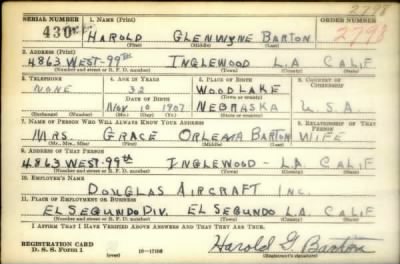 2798
SERIAL NUMBER 1. NAME (Print) ORDER NUMBER
430 HAROLD GLENWYNE BARTON 2798
(First) (Middle) (Last)
2. ADDRESS (Print)
4863 WEST-99th INGLEWOOD L.A CALIF
(Number and street or R. F. D. number) (Town) (County) (State)
3. TELEPHONE 4. AGE IN YEARS 5. PLACE OF BIRTH 6. COUNTRY OF CITIZENSHIP
NONE 32 WOODLAKE
(Town or county)
DATE OF BIRTH
NOV 10 1907 NEBRASKA U.S.A.
(Exchange) (Number) (Mo.) (Day) (Yr.) (State or country)
7. NAME OF PERSON WHO WILL ALWAYS KNOW YOUR ADDRESS 8. RELATIONSHIP OF THAT PERSON
MRS. GRACE ORLEANA BARTON WIFE
(Mr., Mrs., Miss) (First) (Middle) (Last)
9. ADDRESS OF THAT PERSON
4863 WEST-99th INGLEWOOD - L.A. CALIF
(Number and street or R. F. D. number) (Town) (County) (State)
10. EMPLOYER'S NAME
DOUGLAS AIRCRAFT INC.
11. PLACE OF EMPLOYMENT OR BUSINESS
EL SEGUNDO DIV. EL SEGUNDO LA CALIF
(Number and street or R. F. D. number) (Town) (County) (State)
I AFFIRM THAT I HAVE VERIFIED ABOVE ANSWERS AND THAT THEY ARE TRUE.
REGISTRATION CARD
D. S. S. Form 1 (over) Harold G. Barton